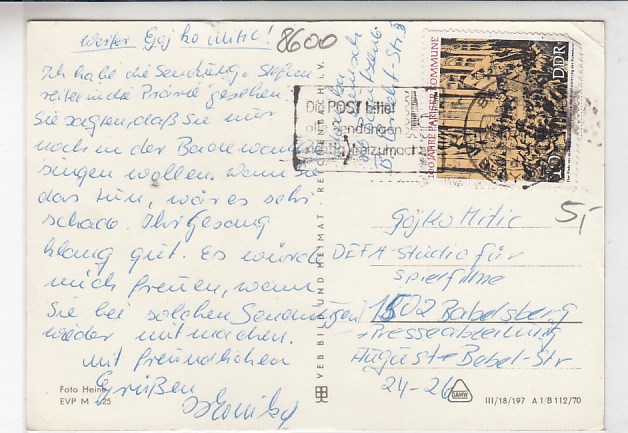 Werter Gojko Mitic!
8600
Ich habe die Sendung
reiter in die Prärie" gesehen.
Sie sagten, daß Sie nur
noch in der Badewanne
singen wollen. Wenn Sie
das tun, wäre es sehr
schade. Ihr Gesang
klang gut. Es würde
mich freuen, wenn
Sie bei solchen Sendungen
wieder mitmachen.
Mit freundlichen
Grüßen
Foto Heine
EVP M -,25
VEB BILD UND HEIMAT REICHENBACH I. V.
Die POST bittet
100 JAHRE PARISER KOMMUNE
DDR
10
5,-
Gojko Mitic
DEFA-Studio für
Spielfilme
1502 Babelsberg
Presseabteilung
August-Bebel-Str
24-26
DAMW
III/18/197 A 1/B 112/70